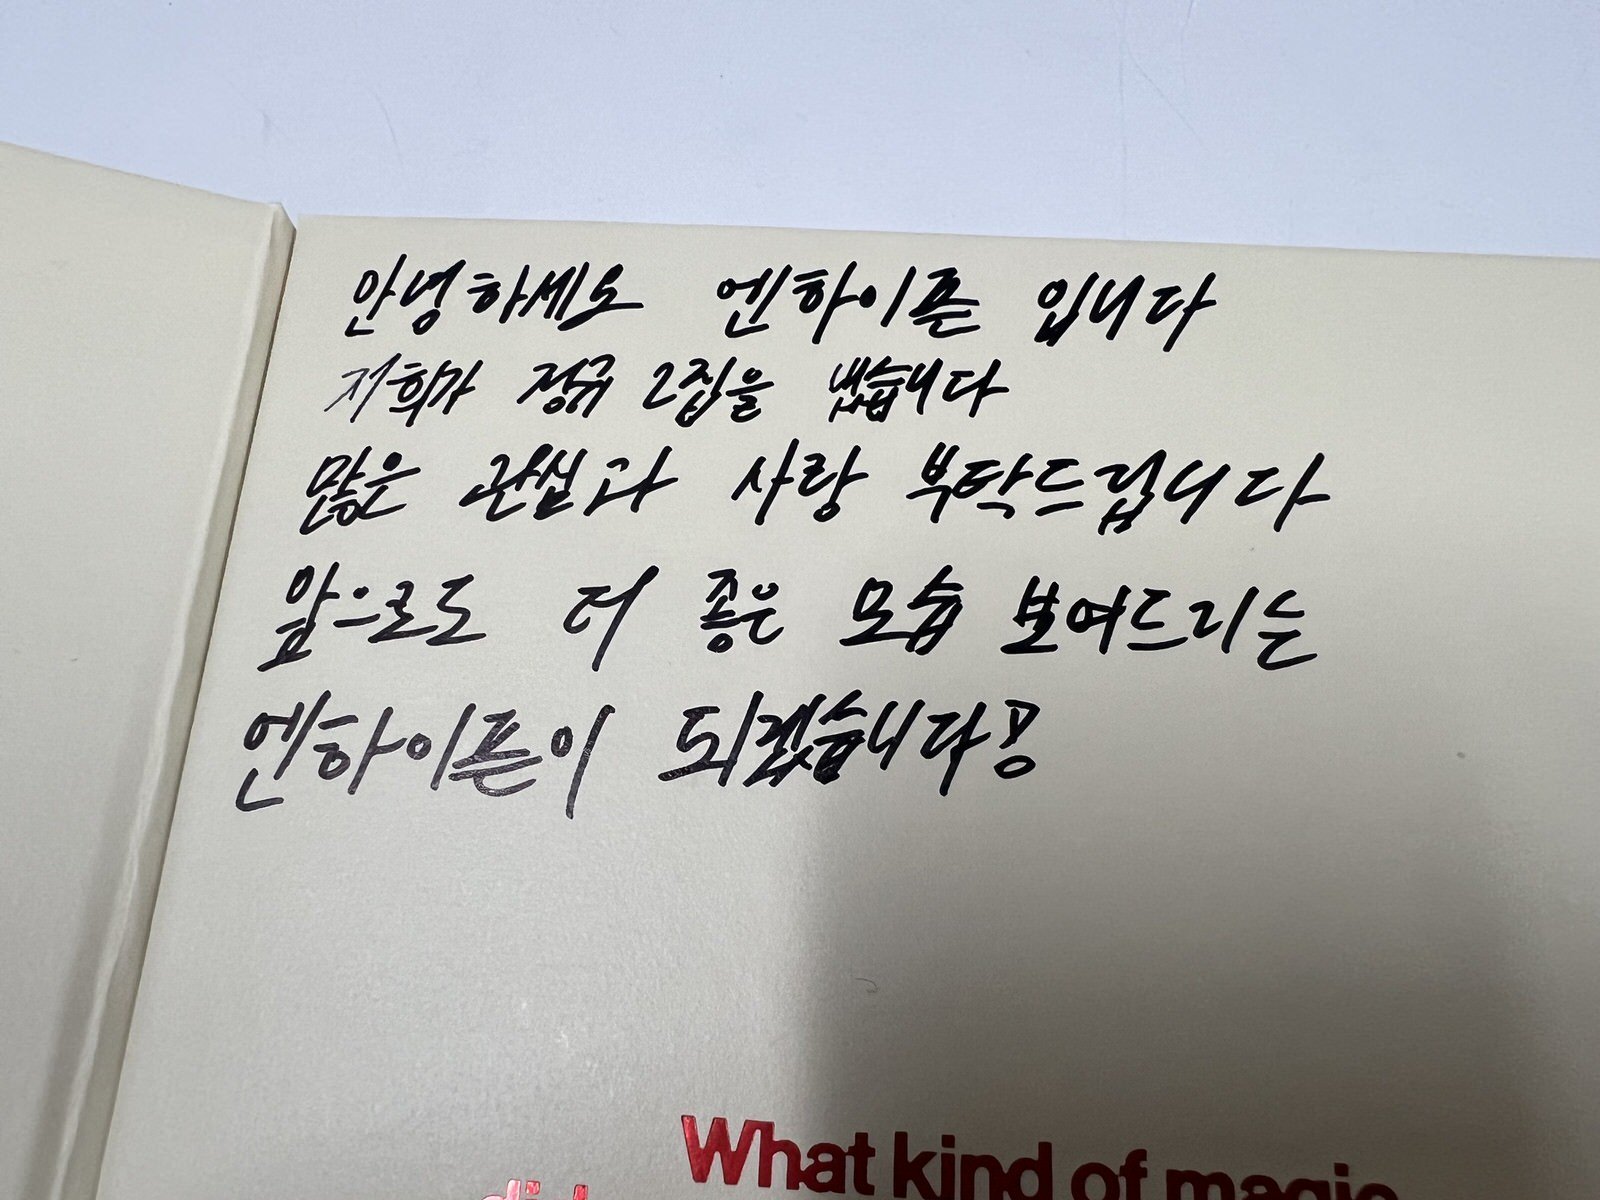 안녕하세요 엔하이픈 입니다
저희가 정규 2집을 냈습니다
많은 관심과 사랑 부탁드립니다
앞으로도 더 좋은 모습 보여드리는
엔하이픈이 되겠습니다!
What kind of magic